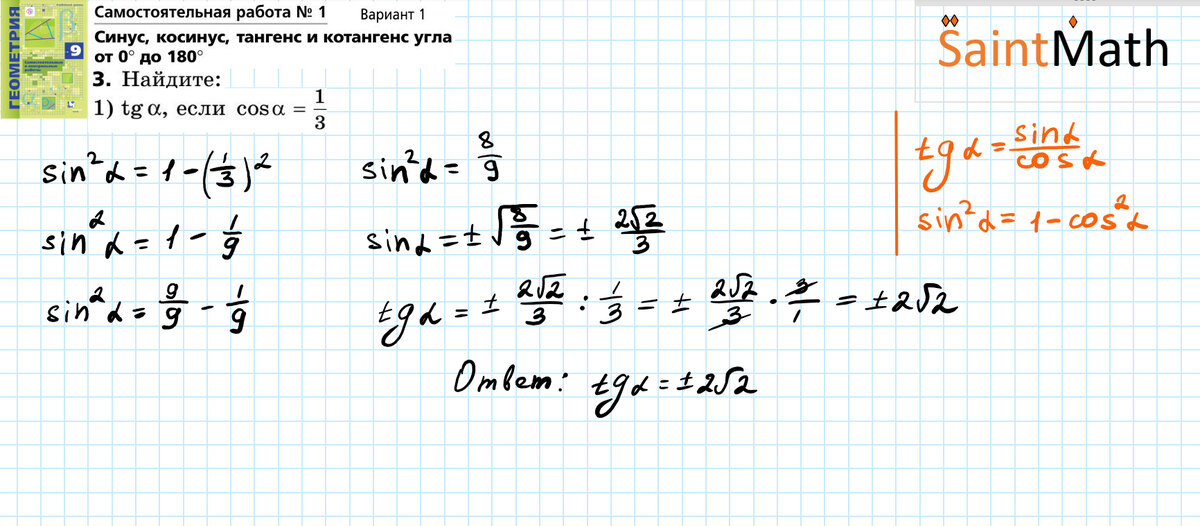 ГЕОМЕТРИЯ
9
Самостоятельная работа № 1 Вариант 1
Синус, косинус, тангенс и котангенс угла
от 0° до 180°
3. Найдите:
1) tg α, если cos α = 1/3
SaintMath
tg α = sin α / cos α
sin² α = 1 - cos² α
sin² α = 1 - (1/3)²
sin² α = 1 - 1/9
sin² α = 9/9 - 1/9
sin² α = 8/9
sin α = ± √(8/9) = ± 2√2/3
tg α = ± 2√2/3 : 1/3 = ± 2√2/3 · 3/1 = ± 2√2
Ответ: tg α = ± 2√2